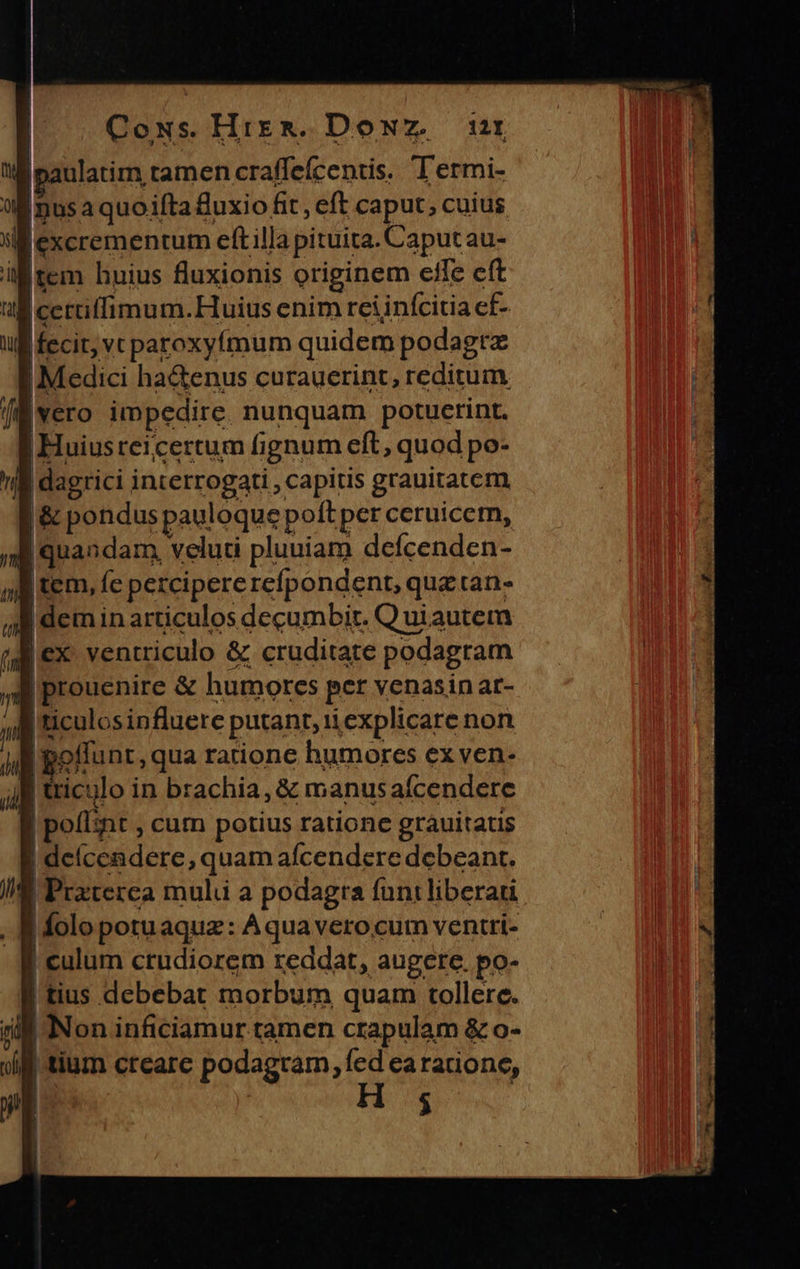 Cons. Hier. Donz. 121
paulatim tamen craſſeſcentis. Termi-
nus a quo iſta fluxio fit, eſt caput, cuius
excrementum eſt illa pituita. Caput au-
tem huius fluxionis originem eſſe eſt
certiſſimum. Huius enim rei inſcitia ef-
fecit, vt paroxyſmum quidem podagræ
Medici hactenus curauerint, reditum
vero impedire nunquam potuerint.
Huius rei certum ſignum eſt, quod po-
dagrici interrogati, capitis grauitatem
& pondus pauloque poſt per ceruicem,
quandam, veluti pluuiam deſcenden-
tem, ſe percipere reſpondent, quæ tan-
dem in articulos decumbit. Qui autem
ex ventriculo & cruditate podagram
prouenire & humores per venas in ar-
ticulos influere putant, ii explicare non
poſſunt, qua ratione humores ex ven-
triculo in brachia, & manus aſcendere
poſſint, cum potius ratione grauitatis
deſcendere, quam aſcendere debeant.
Præterea multi a podagra ſunt liberati
ſolo potu aquæ: Aqua vero cum ventri-
culum crudiorem reddat, augere po-
tius debebat morbum quam tollere.
Non inficiamur tamen crapulam & o-
tium creare podagram, ſed ea ratione,
H 5